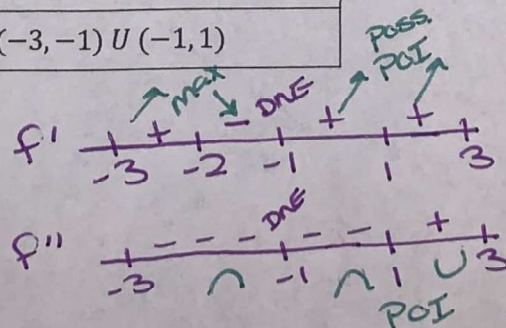 (-3, -1) U (-1, 1)
POSS. POI
max DNE
f' + - + +
-3 -2 -1 1 3
DNE
f'' - - - - - +
-3 ∩ -1 ∩ 1 ∪ 3
POI